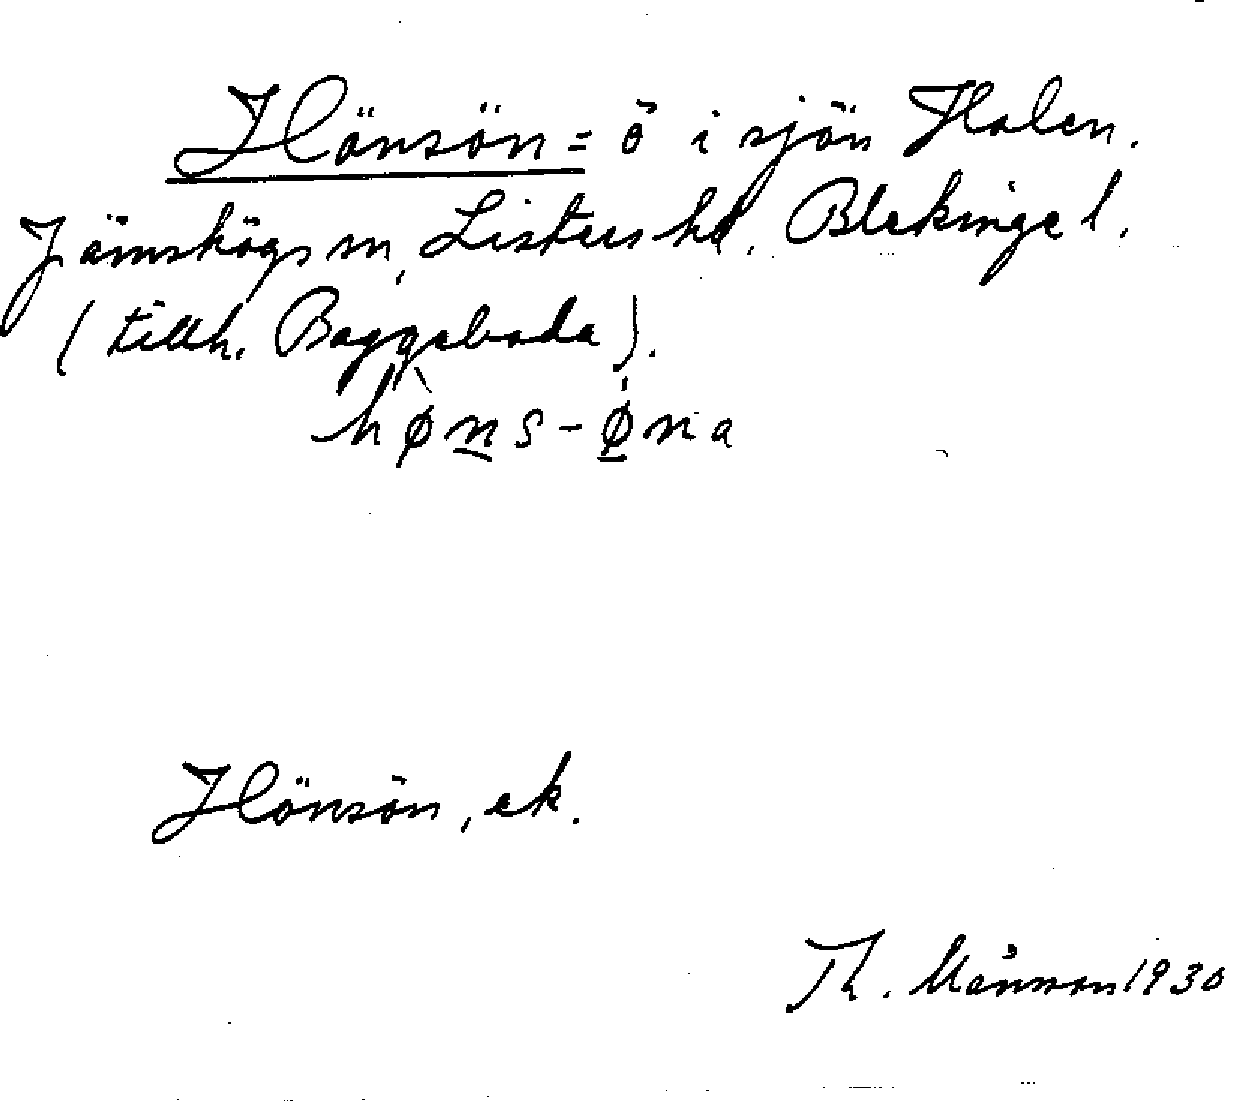 Hönsön = ö i sjön Halen.
Jämshögs sn, Listers hd. Blekinge l.
(tillh. Baggeboda).
hø̀ns-ø̇na
Hönsön, ek.
Th. Månsson 1930